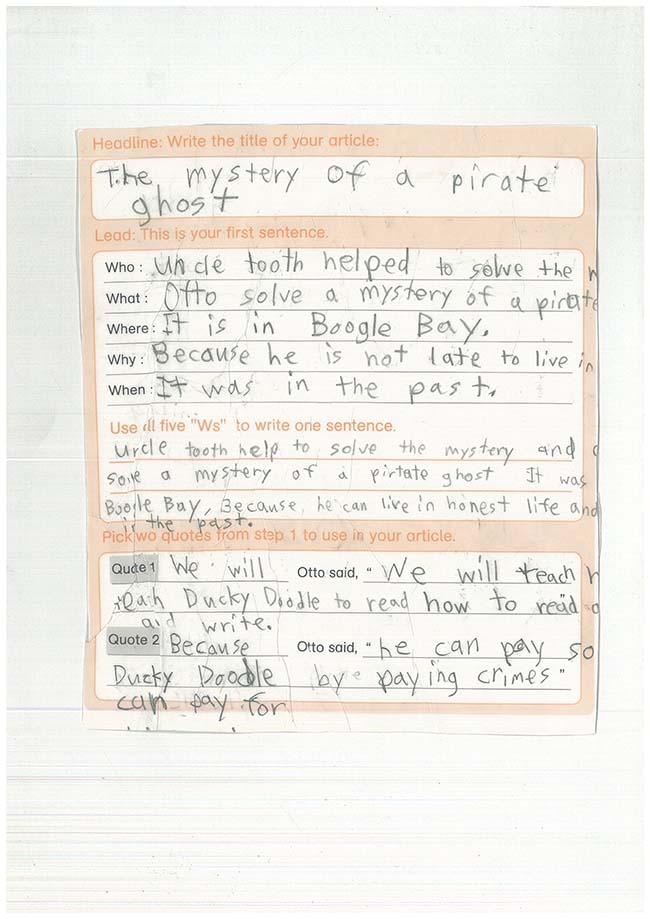 Headline: Write the title of your article:
The mystery of a pirate
ghost
Lead: This is your first sentence.
Who: Uncle tooth helped to solve the
What: Otto solve a mystery of a pirate
Where: It is in Boogle Bay.
Why: Because he is not late to live in
When: It was in the past.
Use all five "Ws" to write one sentence.
Urcle tooth help to solve the mystery and
sove a mystery of a pirtate ghost It was
Boogle Bay, Because, he can live in honest life and
in the past.
Pick two quotes from step 1 to use in your article.
Quote 1 We will Otto said, " We will teach
teah Ducky Doodle to read how to read
and write.
Quote 2 Because Otto said, " he can pay so
Ducky Doodle by paying crimes"
can pay for